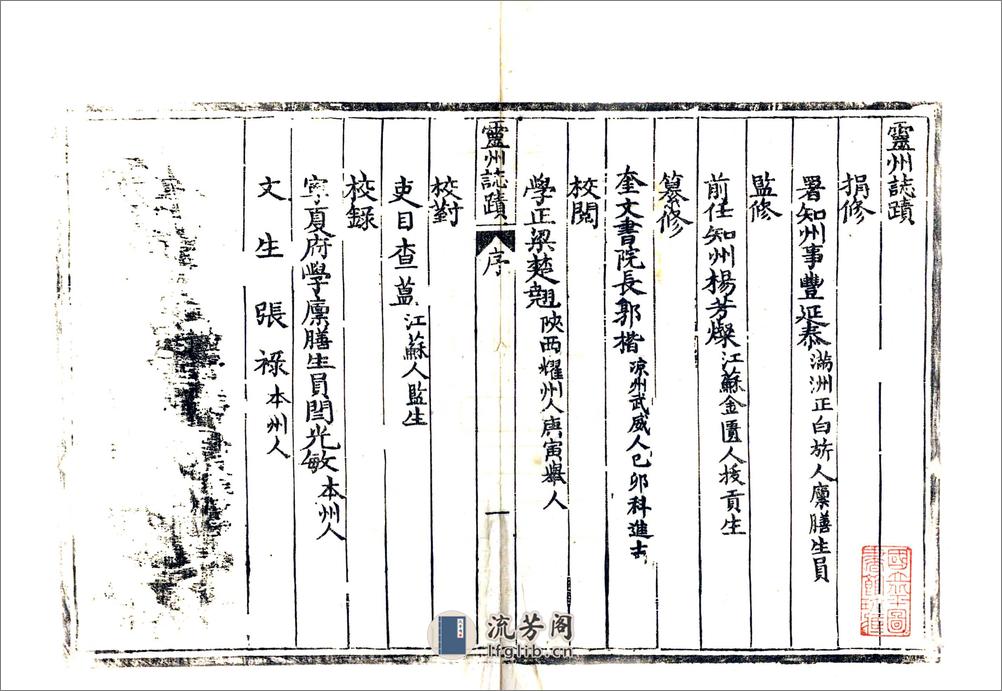 靈州誌蹟
捐修
署知州事豐延泰滿洲正白旂人廪膳生員
監修
前任知州楊芳燦江蘇金匱人拔貢生
纂修
奎文書院長郭楷凉州武威人乙卯科進士
校閱
學正梁楚翹陝西耀州人庚寅舉人
靈州誌蹟 序 一
校對
吏目查蒕江蘇人監生
校錄
寧夏府學廪膳生員閆光敏本州人
文生張祿本州人
流芳阁
lfglib.cn